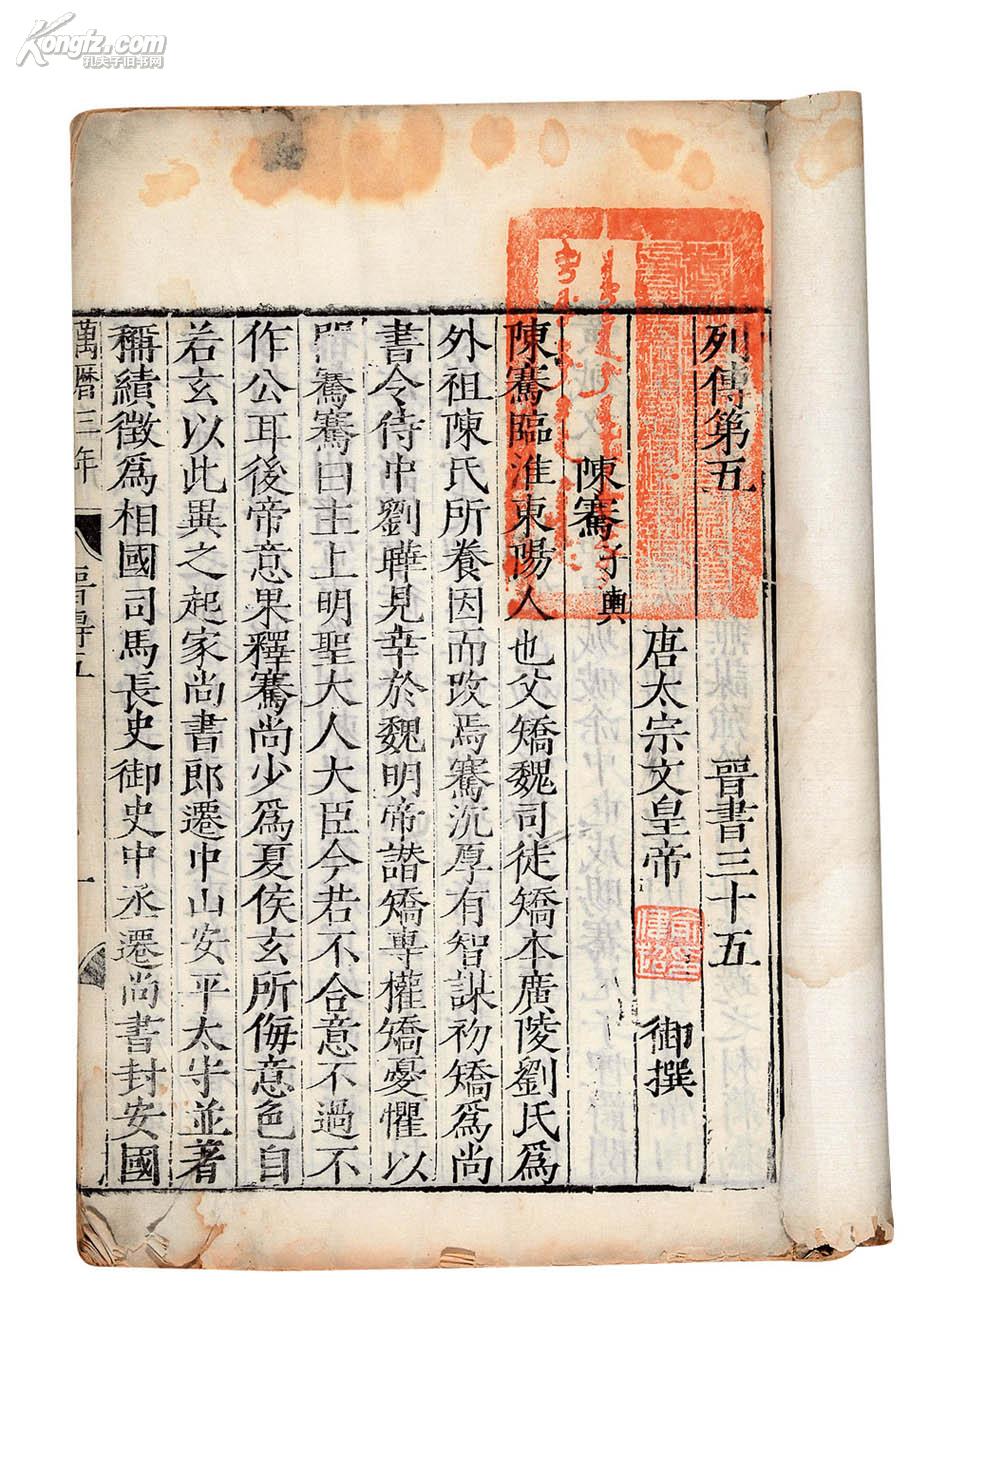 Kongfz.com
孔夫子旧书网
列傳第五 晉書三十五
唐太宗文皇帝 御撰
陳騫子輿
陳騫臨淮東陽人也父矯魏司徒矯本廣陵劉氏爲
外祖陳氏所養因而改焉騫沉厚有智謀初矯爲尚
書令侍中劉曄見幸於魏明帝譖矯專權矯憂懼以
問騫騫曰主上明聖大人大臣今若不合意不過不
作公耳後帝意果釋騫尚少爲夏侯玄所侮意色自
若玄以此異之起家尚書郎遷中山安平太守並著
稱績徵爲相國司馬長史御史中丞遷尚書封安國
萬曆三年 五 一